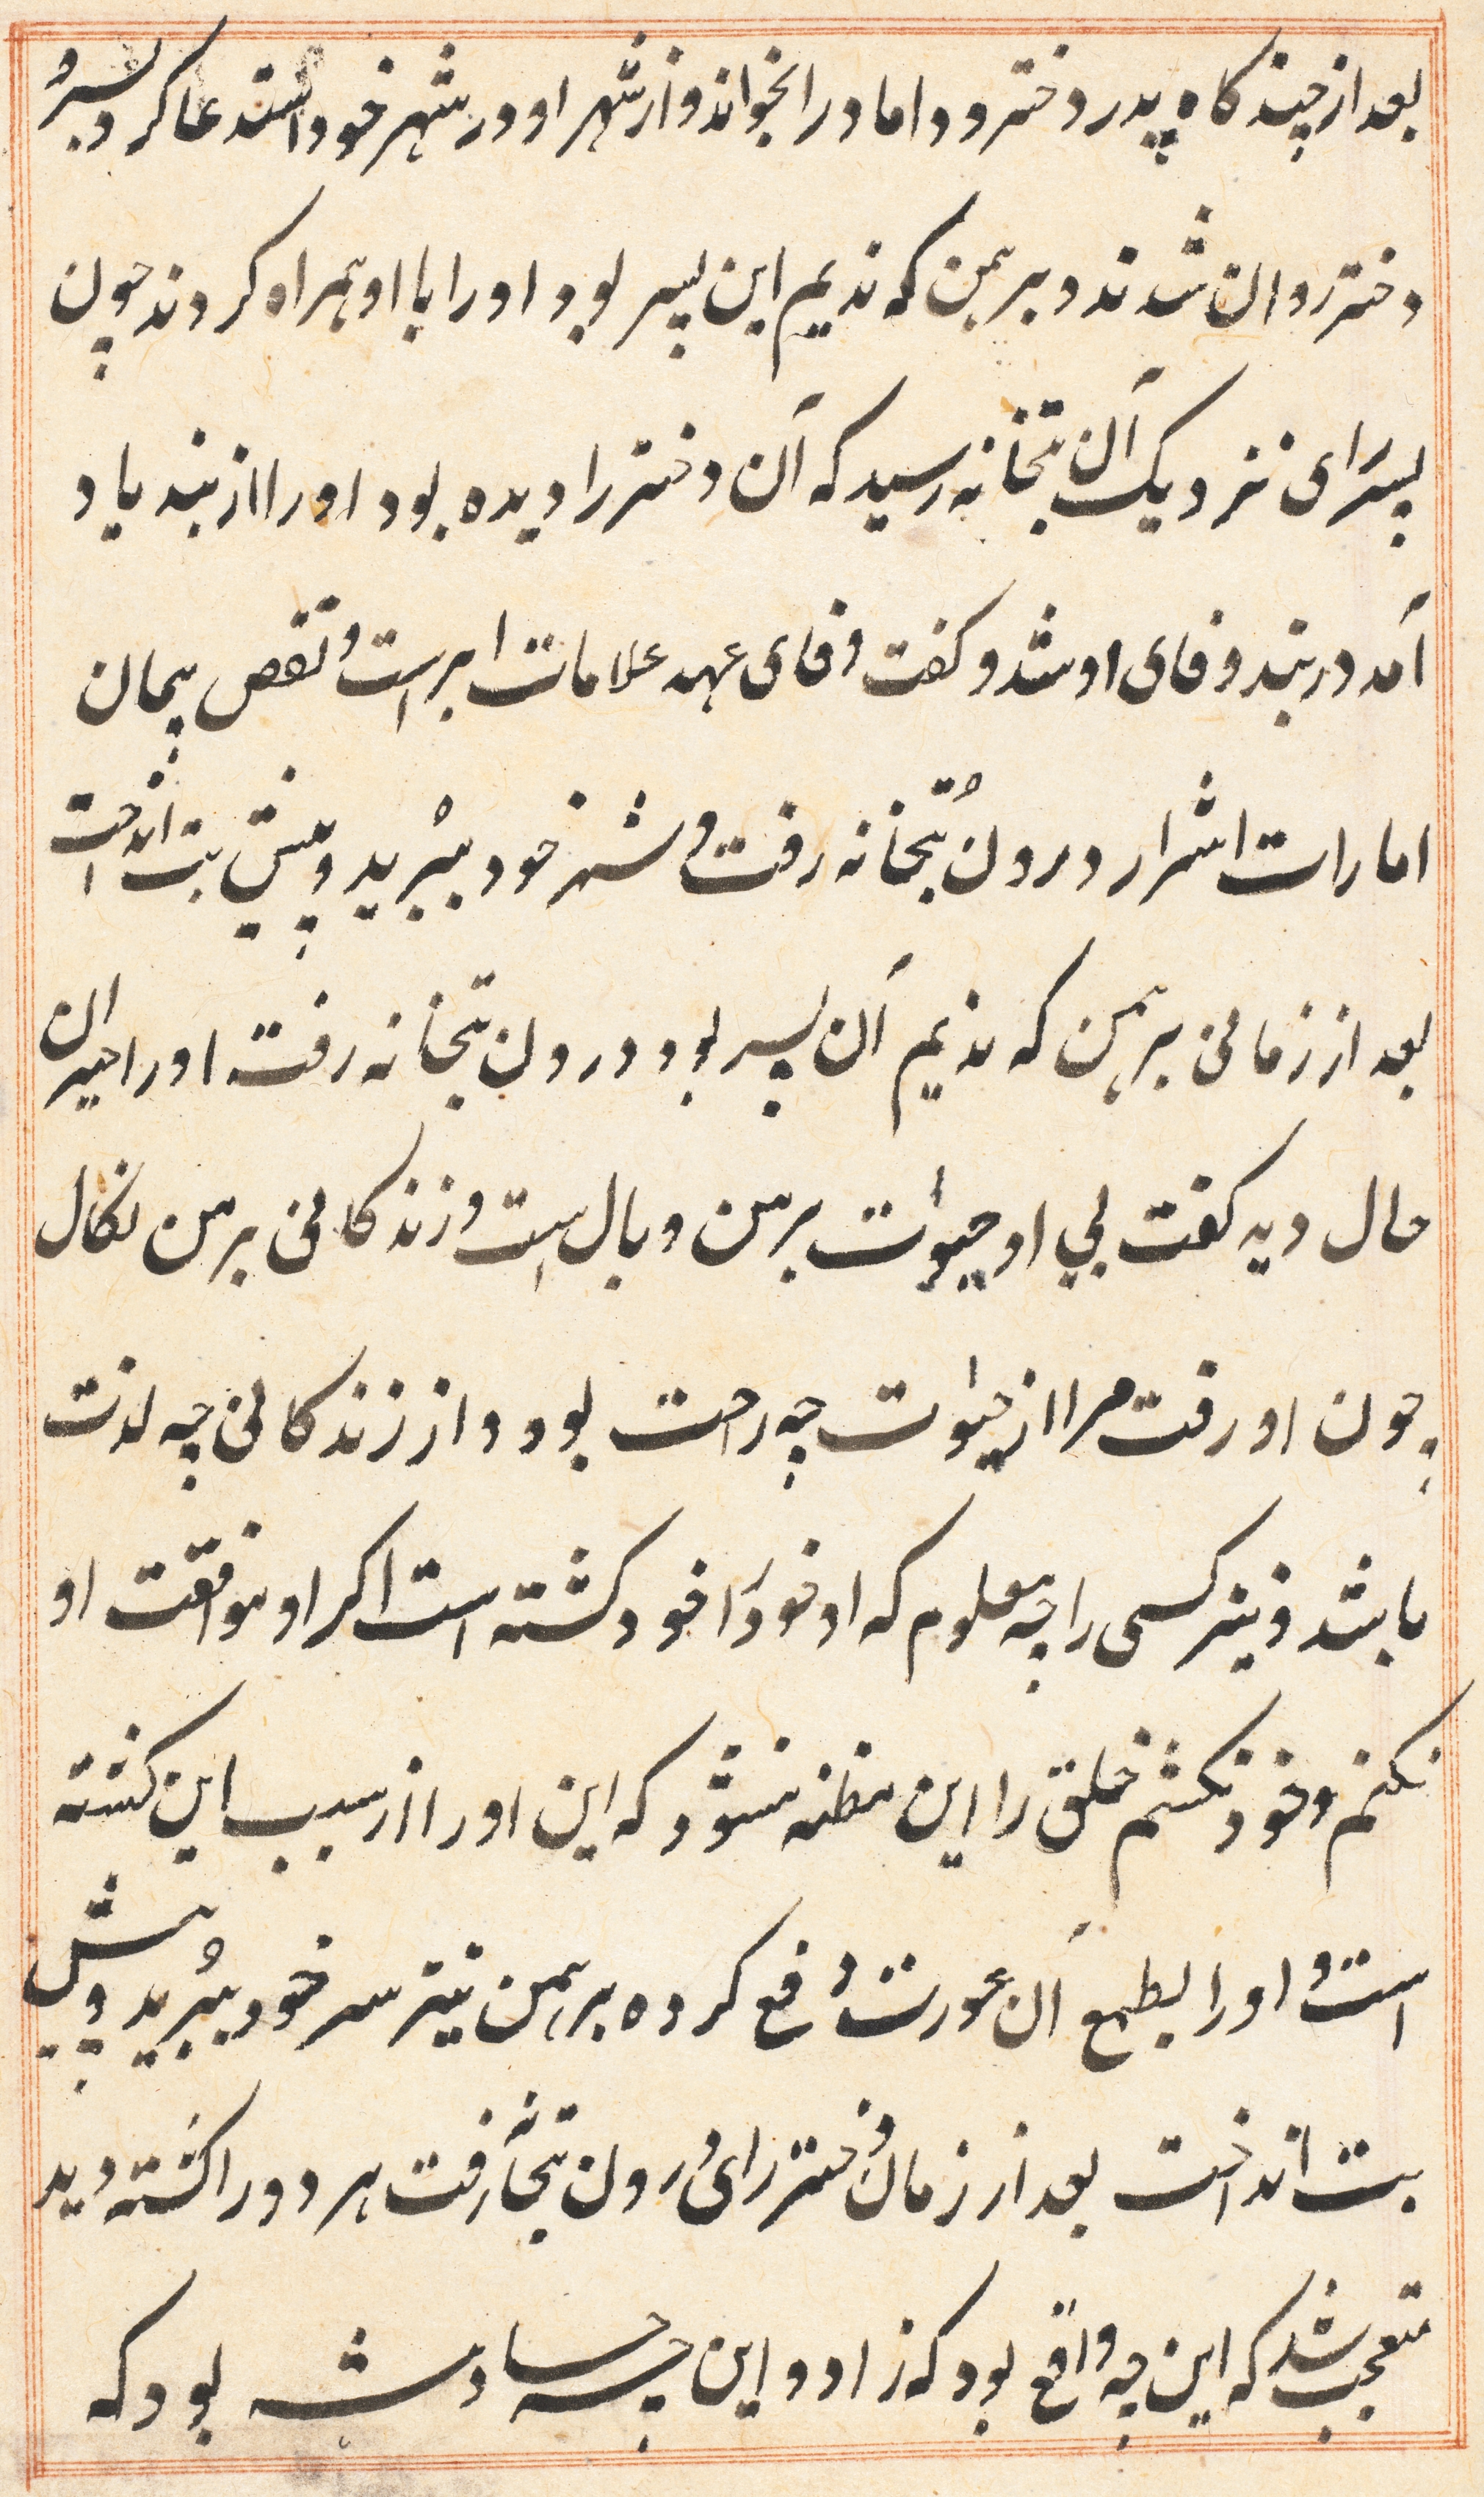 بعد از چندگاه پدر دختر و داماد را بخواند و از شهر او در شهر خود استدعا کرد پسر و
دختر روان شدند و برهمن که ندیم این پسر بود او را با او همراه کردند چون
پسرای نزدیک آن بتخانه رسید که آن دختر را دیده بود او را از بند یاد
آمد در بند وفای او شد و گفت وفای عهد علامات ابر است و نقص پیمان
امارات اشرار درون بتخانه رفت و سر خود ببرید و پیش بت انداخت
بعد از زمانی برهمن که ندیم آن پسر بود درون بتخانه رفت او را حیران
حال دید گفت بی او حیوات بر من وبال است و زندگانی بر من نکال
چون او رفت مرا از حیوات چه راحت بود و از زندگانی چه لذت
باشد و نیز کسی را چه معلوم که او خود را خود کشته است اگر او موافقت او
نکنم و خود نکشم خلق را این مظنه نشود که این او را از سبب این کشته
است و او را بطمع آن عورت دفع کرده برهمن نیز سر خود ببرید و پیش
بت انداخت بعد از زمان دختر رای درون بتخانه رفت هر دو را کشته دید
متعجب شد که این چه واقع بود که زاد و این چه حسادث بود که